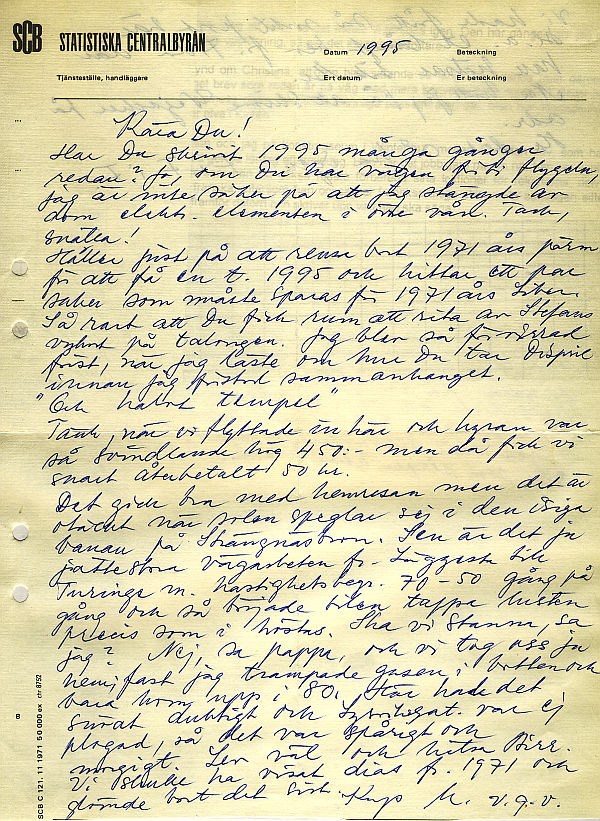 SCB STATISTISKA CENTRALBYRÅN
Datum 1995 Beteckning
Tjänsteställe, handläggare Ert datum Er beteckning
Kära Du!
Har Du skrivit 1995 många gånger
redan? Jo, om Du har vägen förbi flygeln,
jag är inte säker på att jag stängde av
dom elektr. elementen i övre vån. Tack,
snälla!
Håller just på att rensa bort 1971 års pärm
för att få en t. 1995 och hittar ett par
saker som måste sparas för 1971 års
Så rart att Du fick rum att rita av Stefans
på talongen. Jag blev så förvirrad
först, när jag läste om hur Du tar Dispril
innan jag förstod sammanhanget.
"Och halvt tempel"
Tänk, när vi flyttade in här och hyran var
så svindlande hög 450:- men då fick vi
snart återbetalt 50 kr.
Det gick bra med henresan men det är
otäckt när solen speglar sig i den isiga
banan på Strängnäsbron. Sen är det ju
jättestora vägarbeten fr. Läggesta till
Turinge m. hastighetsbegr. 70-50 gång på
gång och så började bilen tappa lusten
precis som i höstas. Ska vi stanna, sa
jag? Nej, sa pappa, och vi tog oss ju
hem, fast jag trampade gasen i botten och
bara kom upp i 80. Här hade det
snöat duktigt och gat. var ej
plogad, så det var spårigt och
morgigt. Lev väl och hälsa Birr.
Vi skulle ha visat dias fr. 1971 och
glömde bort det sist. Kram M. v.g.v.
SCB C 121. 11 1971 50 000 ex chr 8752
8